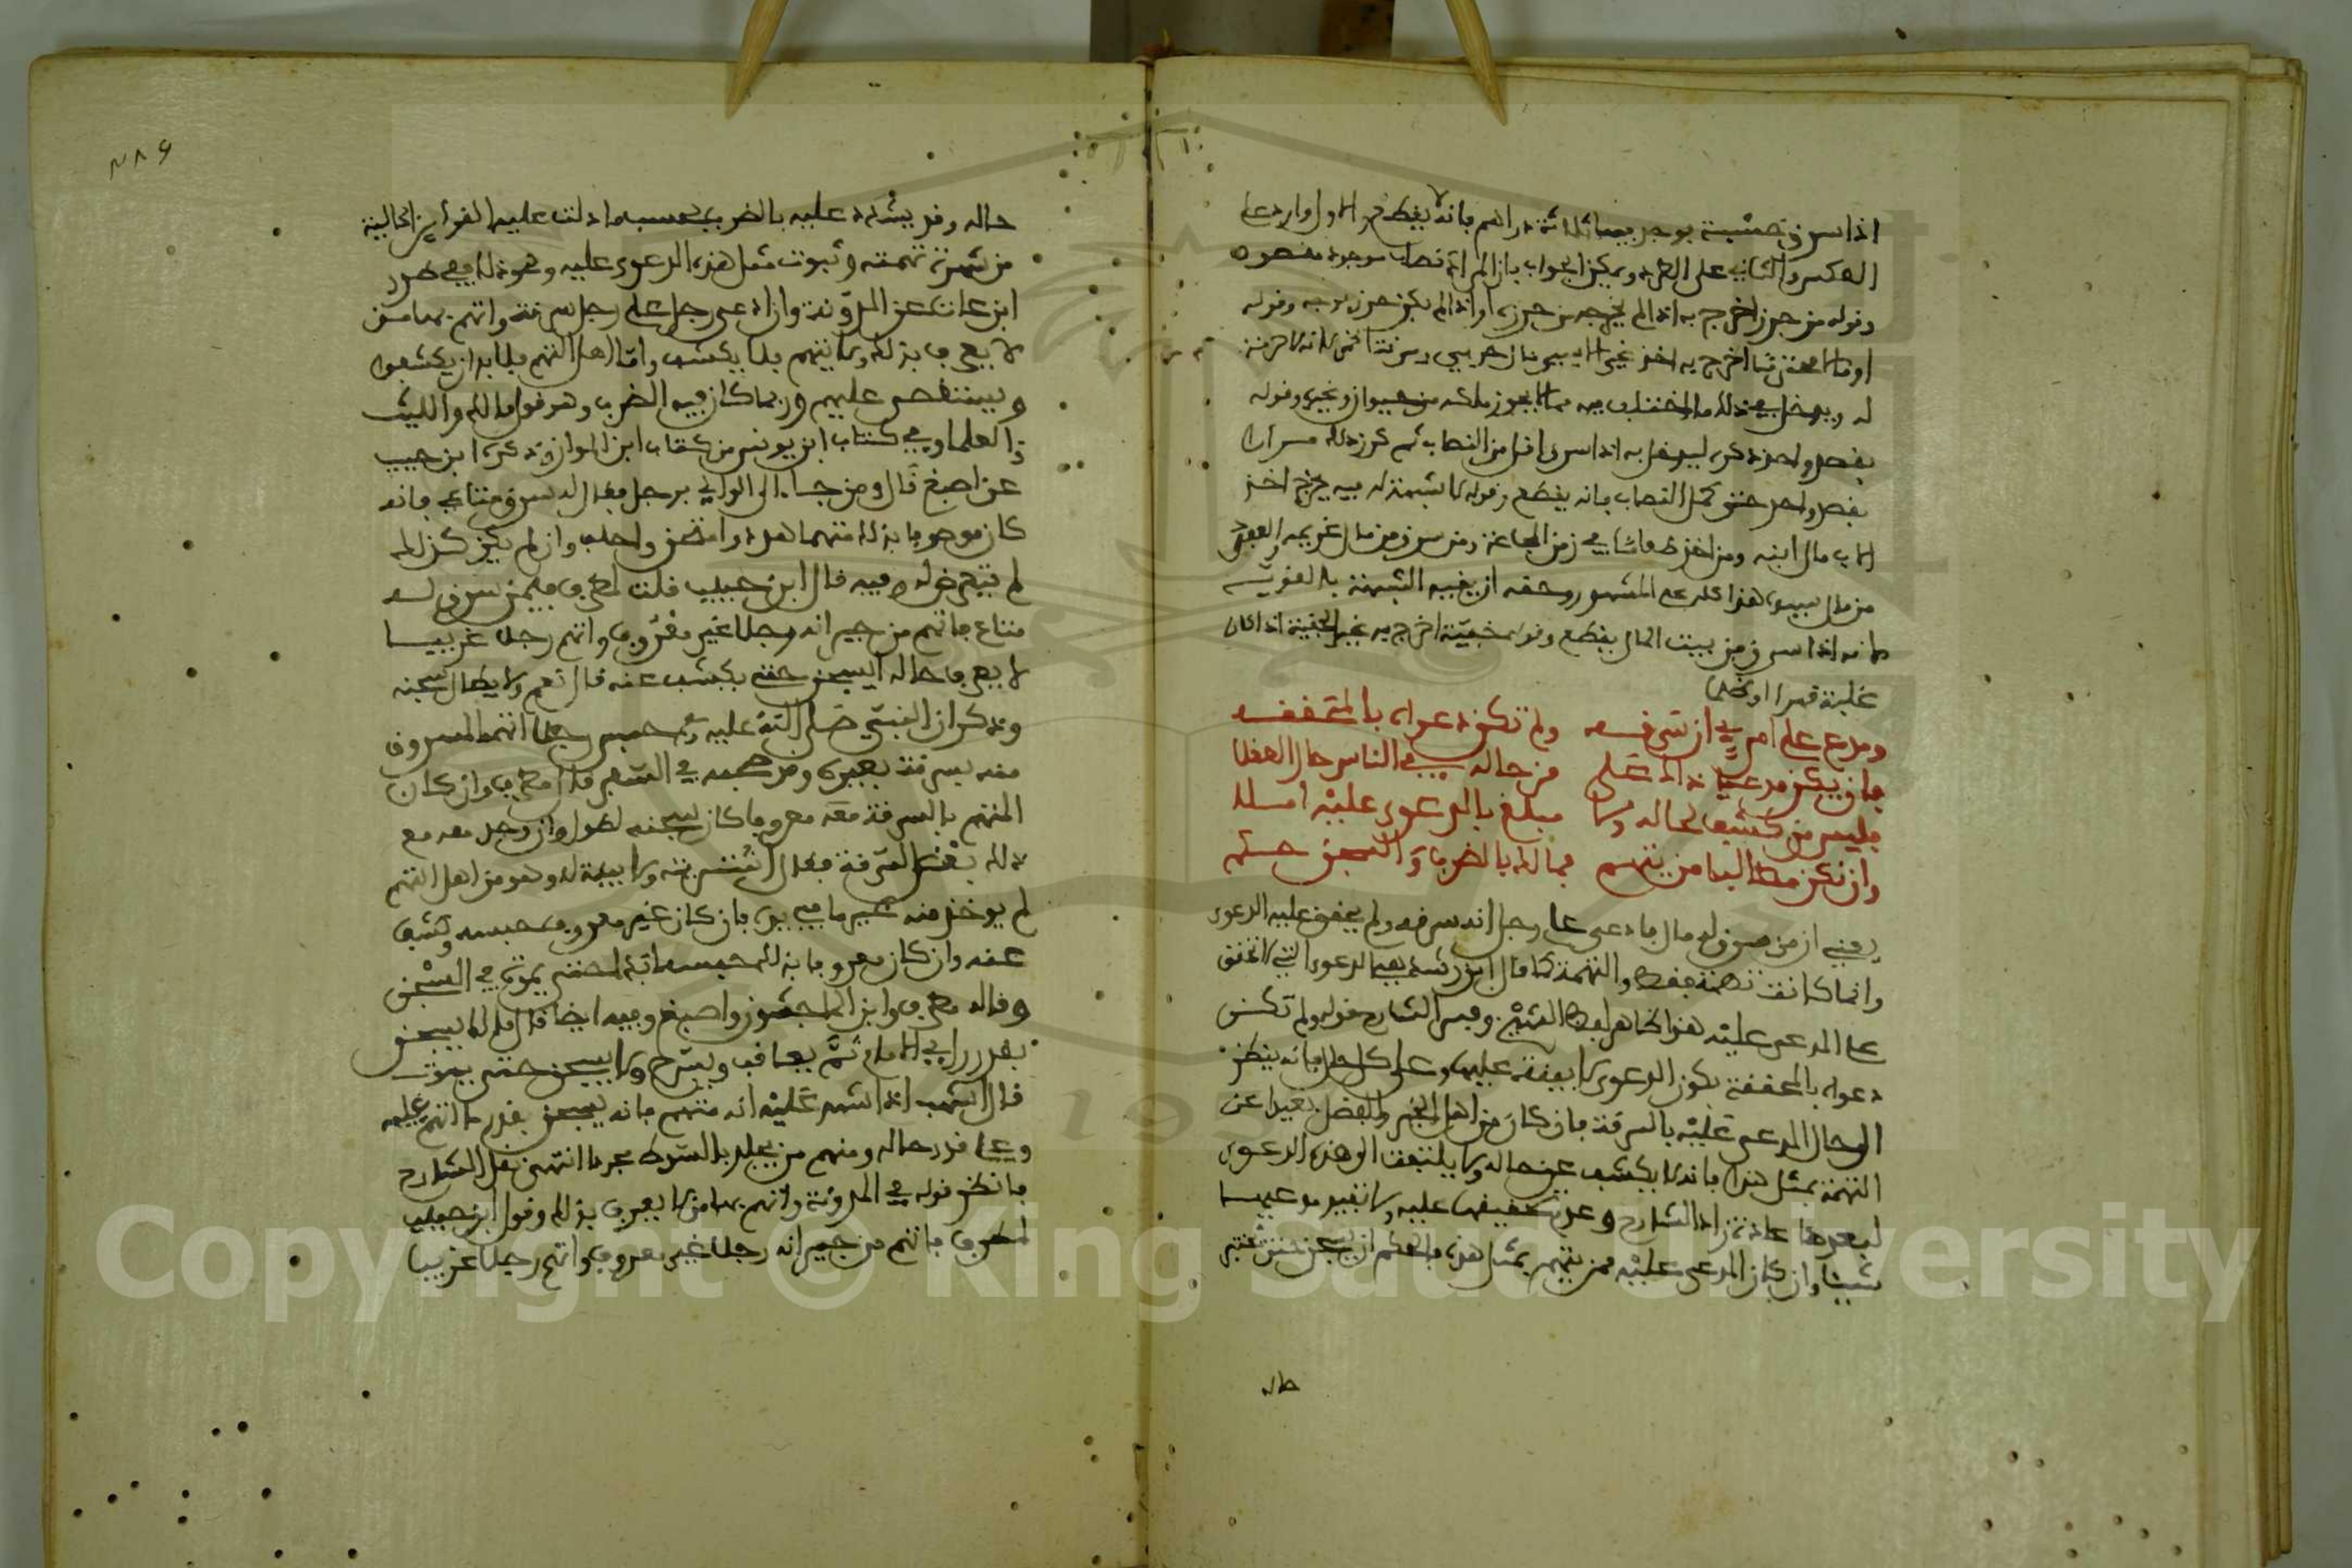 اذا سرق خشبة يوجد بها ثلاثة دراهم فانه لا يقطع والاول وارد على
العكس والثاني على الطرد ويمكن الجواب بان المراد نصاب موجود مقصود
وقوله من حرز اخرج به اذا لم يخرجه من حرز او اذا لم يكن حرز بوجه وقوله
اخرج به اخذ غير
له ويدخل في ذلك ما اختلف فيه مما لا يجوز ملكه من حيوان وغيره وقوله
بقصد واحد ذكره ليدخل به اذا سرق اقل من النصاب ثم كرر ذلك مرارا
بقصد واحد حتى كمل النصاب فانه يقطع وقوله لا شبهة له فيه يخرج اخذ
الاب مال ابنه ومن اخذ طعاما في زمن المجاعة ومن سرق من مال غريمه والعبد
من مال سيده هذا كله على المشهور وحقه ان يقيد الشبهة بالقوية
لانه اذا سرق من بيت المال يقطع وقوله خفية اخرج به غير الخفية اذا كان
غلبة قهرا او
ومدع على امرئ ان سرقه ولم تكن دعواه بالمحققه
فان يكن مدعيا ذاك على من حاله في الناس حال الفضلا
فليس من كشف لحاله ولا مبلغ بالدعوى عليه املا
وان تكن مطالبا من يتهم فمالك بالضرب والسجن حكم
يعني ان من سرق له مال فادعى على رجل انه سرقه ولم يحقق عليه الدعوى
وانما كانت تهمة فقط والتهمة كما قال ابن رشد هي الدعوى التي لا تحقق
على المدعى عليه هذا ظاهر لفظ الشيخ وفسر الشارح قوله ولم تكن
دعواه بالمحققة بكون الدعوى لا بينة عليها وعلى كل حال فانه ينظر
الى حال المدعى عليه بالسرقة فان كان من اهل الخير والفضل بعيدا عن
التهمة بمثل هذا فانه لا يكشف عن حاله ولا يلتفت الى هذه الدعوى
لبعدها عادة زاد الشارح وعدم تحقيقها عليه ولا تفيد مدعيها
شيئا وان كان المدعى عليه ممن يتهم بمثل هذه فالحكم ان يسجن حتى يختبر
حاله
حاله وقد يشدد عليه بالضرب بحسب ما دلت عليه القرائن الحالية
من شهرة تهمته وثبوت مثل هذه الدعوى عليه ونحو ذلك ففي طرر
ابن عات عن المدونة وان ادعى رجل على رجل سرقة واتهم بها من
لا يعرف بذلك ولا يتهم فلا يكشف واما اهل التهم فلا بد ان يكشفوا
ويستقصى عليهم وربما كان فيه الضرب وهو قول مالك والليث
والعلماء وفي كتاب ابن يونس من كتاب ابن المواز وذكره ابن حبيب
عن اصبغ قال ومن جاء الى الوالي برجل فقال له سرق متاعي فان
كان موصوفا بذلك متهما هدد وامتحن واحلف وان لم يكن كذلك
لم يتعرض له فيه قال ابن حبيب قلت لمطرف فيمن سرق له
متاع فاتهم من جيرانه رجلا غير معروف او اتهم رجلا غريبا
لا يعرف حاله ايسجن حتى يكشف عنه قال نعم ولا يطال سجنه
وذكر ان النبي صلى الله عليه وسلم حبس رجلا اتهمه المسروق
منه بسرقة بعيره وقد صحبه في السفر قال مطرف وان كان
المتهم بالسرقة معه معروفا كان سجنه اطول وان وجد معه مع
ذلك بعض السرقة فقال اشتريته ولا بينة له وهو من اهل التهم
لم يوخذ منه غير ما في يديه فان كان غير معروف حبسه وكشف
عنه وان كان معروفا بذلك حبسه ابدا حتى يموت في السجن
وقاله مطرف وابن الماجشون واصبغ وفيه ايضا قال مالك يسجن
بقدر راي الامام ثم يعاقب ويسرح ولا يسجن حتى يموت
قال اشهب اذا شهد عليه انه متهم فانه يسجن بقدر ما اتهم عليه
وعلى قدر حاله ومنهم من يجلد بالسوط مجردا انتهى نقل الشارح
فانظر قوله في المدونة واتهم بها من لا يعرف بذلك وقول ابن حبيب
لمطرف فاتهم من جيرانه رجلا غير معروف او اتهم رجلا غريبا
Copyright © King Saud University